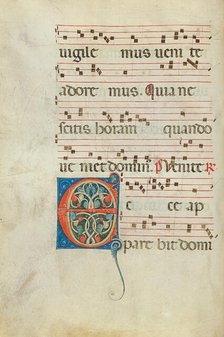 uigile mus ueni te
adore mus. Quia ne
scitis horam quando
ue met domin. Venite R
E c ce ap
pare bit domi